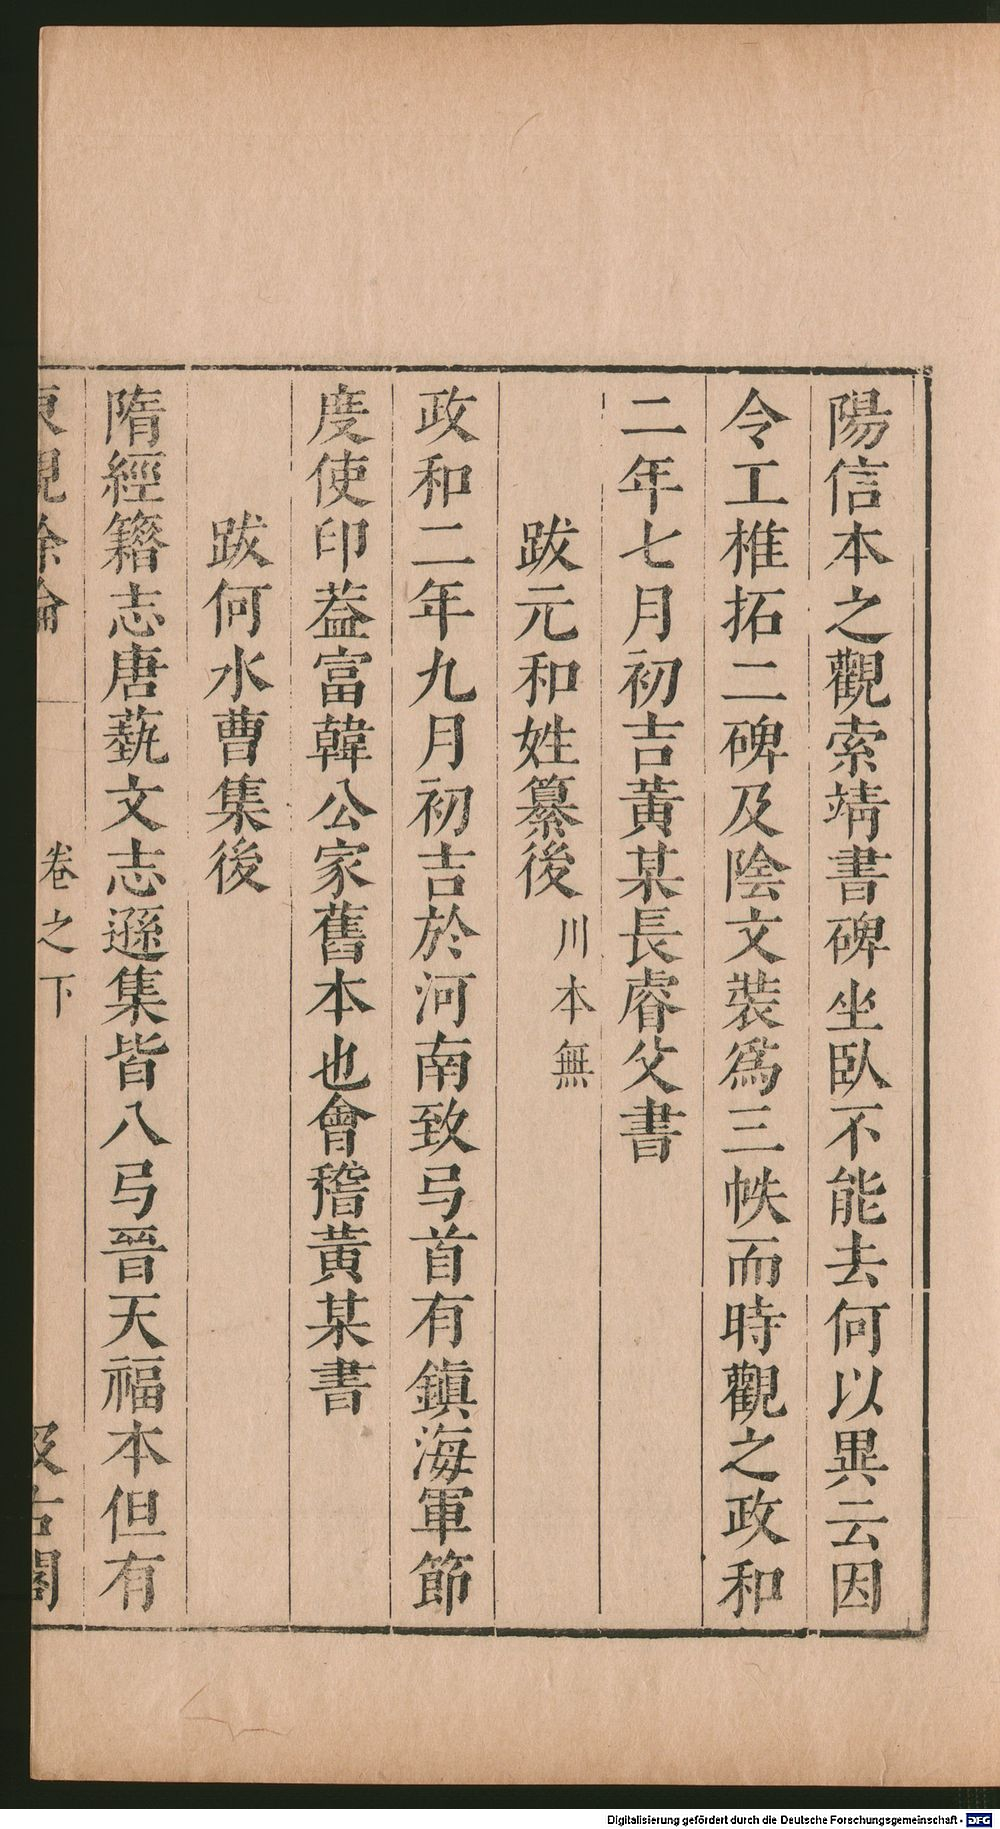 陽信本之觀索靖書碑坐臥不能去何以異云因
令工椎拓二碑及陰文裝爲三帙而時觀之政和
二年七月初吉黃某長睿父書
跋元和姓纂後川本無
政和二年九月初吉於河南致弓首有鎮海軍節
度使印葢富韓公家舊本也會稽黃某書
跋何水曹集後
隋經籍志唐藝文志遜集皆八弓晉天福本但有
東觀餘論 卷之下 汲古閣
Digitalisierung gefördert durch die Deutsche Forschungsgemeinschaft - DFG